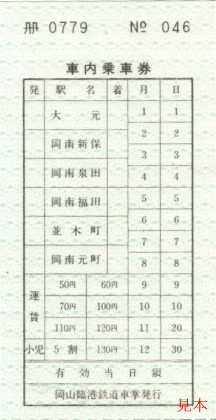 冊 0779 No 046
車内乗車券
発 駅名 着 月 日
大元 1 1
岡南新保 2 2
3 3
岡南泉田 4 4
岡南福田 5 5
並木町 6 6
7 7
岡南元町 8 8
運賃 50円 60円 9 9
70円 100円 10 10
110円 120円 11 20
小児 5割 130円 12 30
有効当日限
岡山臨港鉄道車掌発行
見本